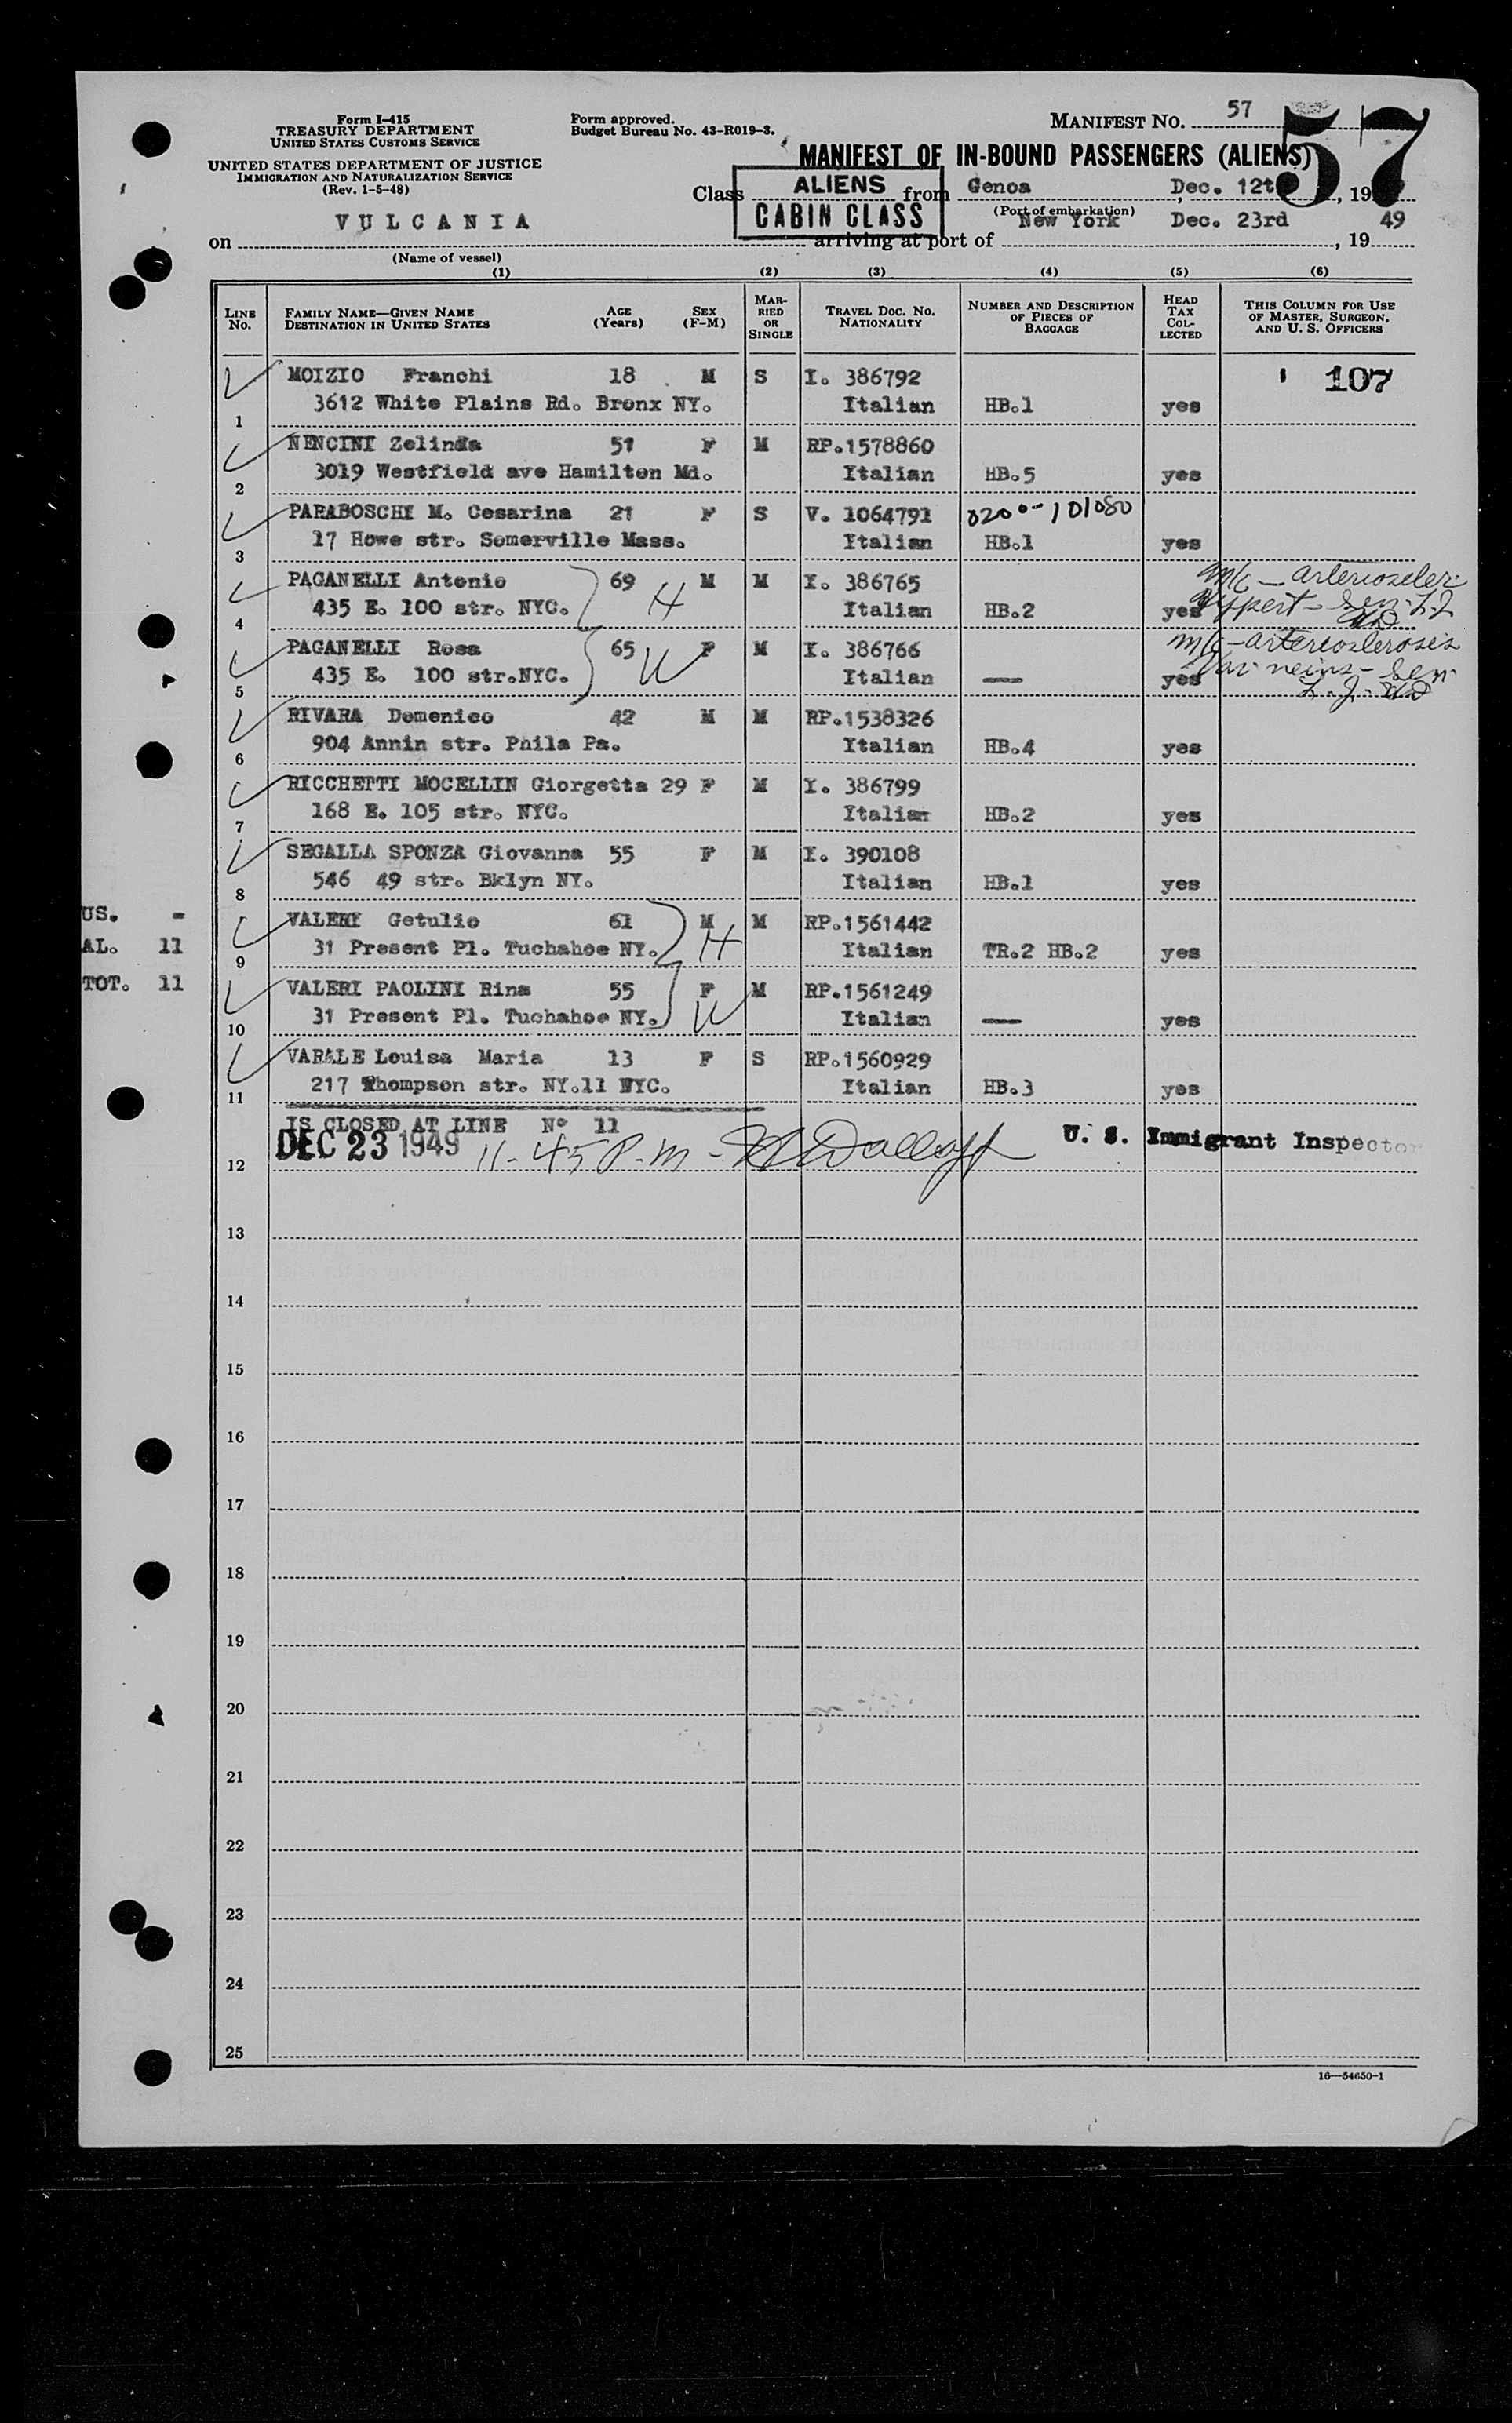 Form I-415
TREASURY DEPARTMENT
UNITED STATES CUSTOMS SERVICE
UNITED STATES DEPARTMENT OF JUSTICE
IMMIGRATION AND NATURALIZATION SERVICE
(Rev. 1-5-48)
Form approved.
Budget Bureau No. 43-R019-3.
MANIFEST NO. 57
57
MANIFEST OF IN-BOUND PASSENGERS (ALIENS)
Class ALIENS CABIN CLASS from Genoa, Dec. 12th, 19
(Port of embarkation)
on VULCANIA arriving at port of New York Dec. 23rd, 19 49
(Name of vessel)
(1) (2) (3) (4) (5) (6)
LINE No. FAMILY NAME—GIVEN NAME DESTINATION IN UNITED STATES AGE (Years) SEX (F-M) MARRIED OR SINGLE TRAVEL DOC. NO. NATIONALITY NUMBER AND DESCRIPTION OF PIECES OF BAGGAGE HEAD TAX COLLECTED THIS COLUMN FOR USE OF MASTER, SURGEON, AND U. S. OFFICERS
MOIZIO Franchi 18 M S I. 386792 107
1 3612 White Plains Rd. Bronx NY. Italian HB.1 yes
NENCINI Zelinda 51 F M RP.1578860
2 3019 Westfield ave Hamilton Md. Italian HB.5 yes
PARABOSCHI M. Cesarina 21 F S V. 1064791 0200-101080
3 17 Howe str. Somerville Mass. Italian HB.1 yes
PAGANELLI Antonio 69 H M M I. 386765 M/C - arterioscler
4 435 E. 100 str. NYC. Italian HB.2 yes
PAGANELLI Rosa 65 W F M I. 386766 M/C - arteriosclerosis
5 435 E. 100 str.NYC. Italian — yes Var. veins - Sen.
RIVARA Domenico 42 M M RP.1538326
6 904 Annin str. Phila Pa. Italian HB.4 yes
RICCHETTI MOCELLIN Giorgetta 29 F M I. 386799
7 168 E. 105 str. NYC. Italian HB.2 yes
SEGALLA SPONZA Giovanna 55 F M I. 390108
8 546 49 str. Bklyn NY. Italian HB.1 yes
US. -
VALERI Getulio 61 M H M RP.1561442
AL. 11
9 31 Present Pl. Tuchahoe NY. Italian TR.2 HB.2 yes
TOT. 11
VALERI PAOLINI Rina 55 F W M RP.1561249
10 31 Present Pl. Tuchahoe NY. Italian — yes
VARALE Louisa Maria 13 F S RP.1560929
11 217 Thompson str. NY.11 NYC. Italian HB.3 yes
IS CLOSED AT LINE No 11
12 DEC 23 1949 11-45 P.m - U. S. Immigrant Inspector
13
14
15
16
17
18
19
20
21
22
23
24
25
16—54650-1